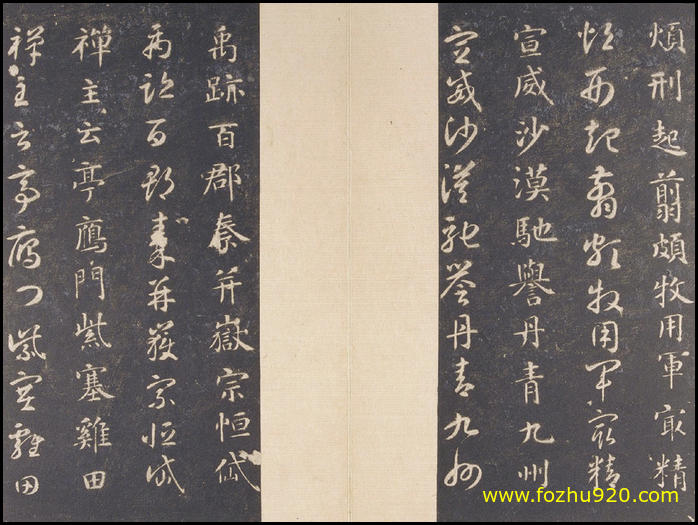 煩刑起翦頗牧用軍㝡精
煩刑起翦頗牧用軍㝡精
宣威沙漠馳譽丹青九州
宣威沙漠馳譽丹青九州
禹跡百郡秦并嶽宗恒岱
禹跡百郡秦并嶽宗恒岱
禪主云亭鴈門紫塞雞田
禪主云亭鴈門紫塞雞田
www.fozhu920.com